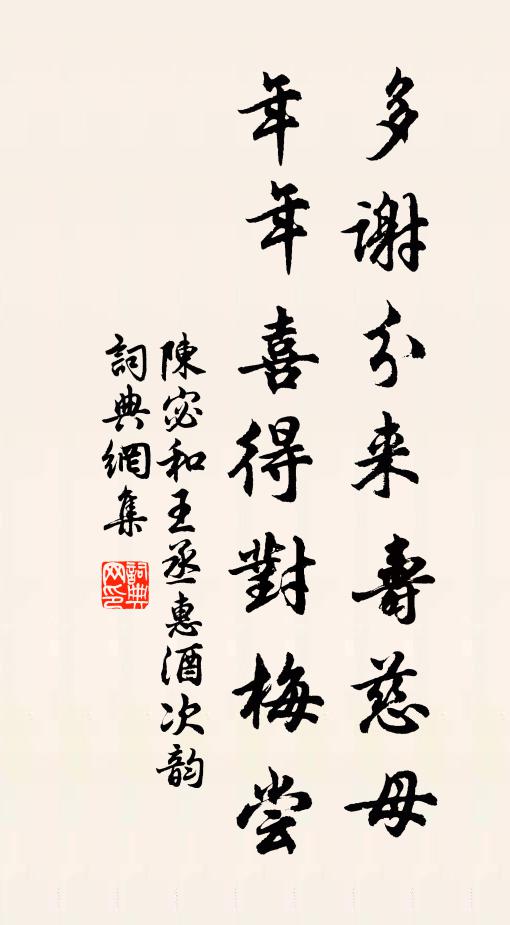 多谢分来壽慈母
年年喜得對梅尝
陳宓和王丞惠酒次韵
詞典網集
詞典网印